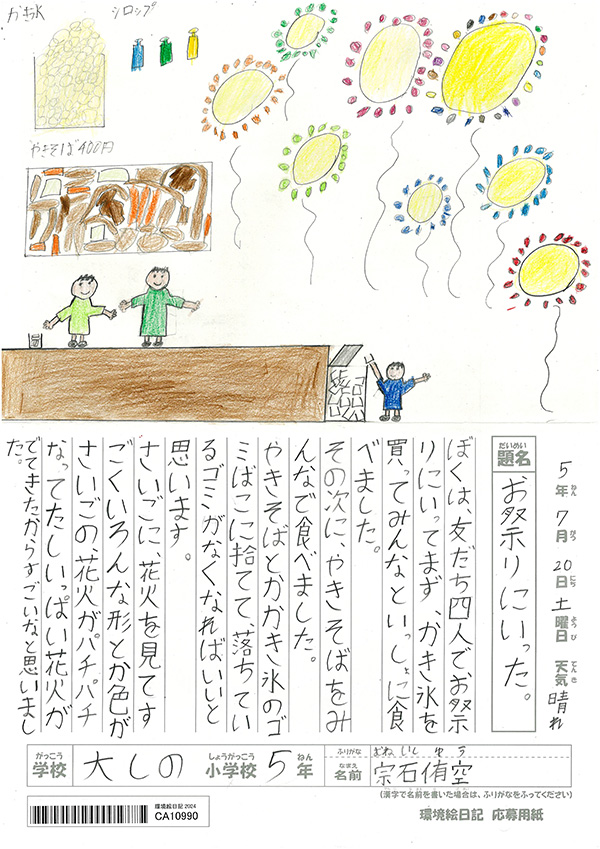 かき氷
シロップ
やきそば400円
5年ねん7月がつ20日にち土曜日ようび 天気てんき晴れ
だいめい
題名
お祭りにいった。
ぼくは、友だち四人でお祭
りにいってまず、かき氷を
買ってみんなといっしょに食
べました。
その次に、やきそばをみ
んなで食べました。
やきそばとかかき氷のゴ
ミばこに捨てて、落ちてい
るゴミがなくなればいいと
思います。
さいごに、花火を見てす
ごくいろんな形とか色が
さいごの、花火がパチパチ
なってたしいっぱい花火が
でてきたからすごいなと思いまし
た。
がっこう
学校 大しの
しょうがっこう
小学校 5 ねん
年
ふりがな むねいし ゆう
なまえ
名前 宗石侑空
(漢字で名前を書いた場合は、ふりがなをふってください)
環境絵日記 2024
CA10990
環境絵日記 応募用紙